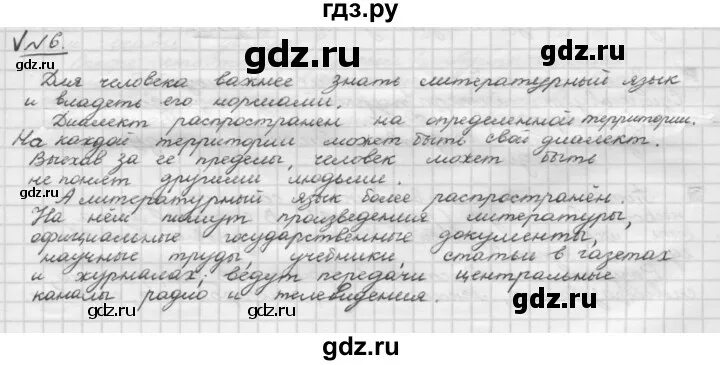 гдз.ру
√ № 6. gdz.ru gdz.ru
Для человека важнее знать литературный язык
и владеть его нормами.
gdz.ru
Диалект распространён на определенной территории.
На каждой территории может быть свой диалект.
Выехав за её пределы, человек может быть
не понят другими людьми.
gdz.ru gdz.ru
А литературный язык более распространён.
На нём пишут произведения литературы,
официальные государственные документы,
gdz.ru
научные труды, учебники, статьи в газетах
и журналах; ведут передачи центральные
каналы радио и телевидения.
gdz.ru gdz.ru
gdz.ru